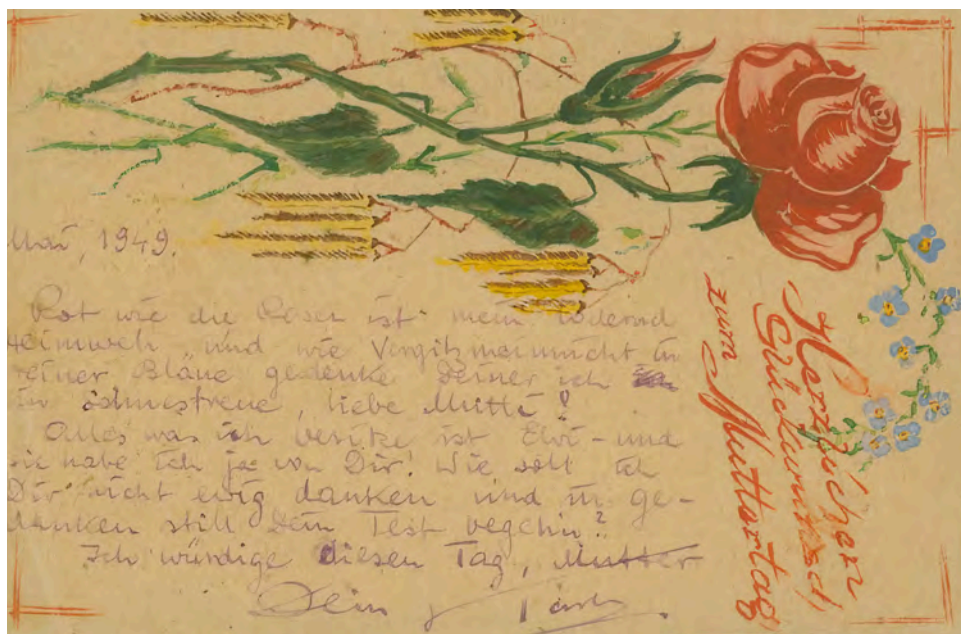 Mai, 1949.
Rot wie die Rosen ist mein lodernd
Heimweh und wie Vergißmeinnicht in
seiner Bläue gedenke Deiner ich
in Sohnestreue, liebe Mutti!
Alles was ich besitze ist Elvi - und
sie habe ich ja von Dir! Wie sollt ich
Dir nicht ewig danken und in Ge-
danken still Dein Fest begehn?
Ich würdige diesen Tag, Mutter
Dein
Herzlichen
Glückwunsch
zum Muttertag